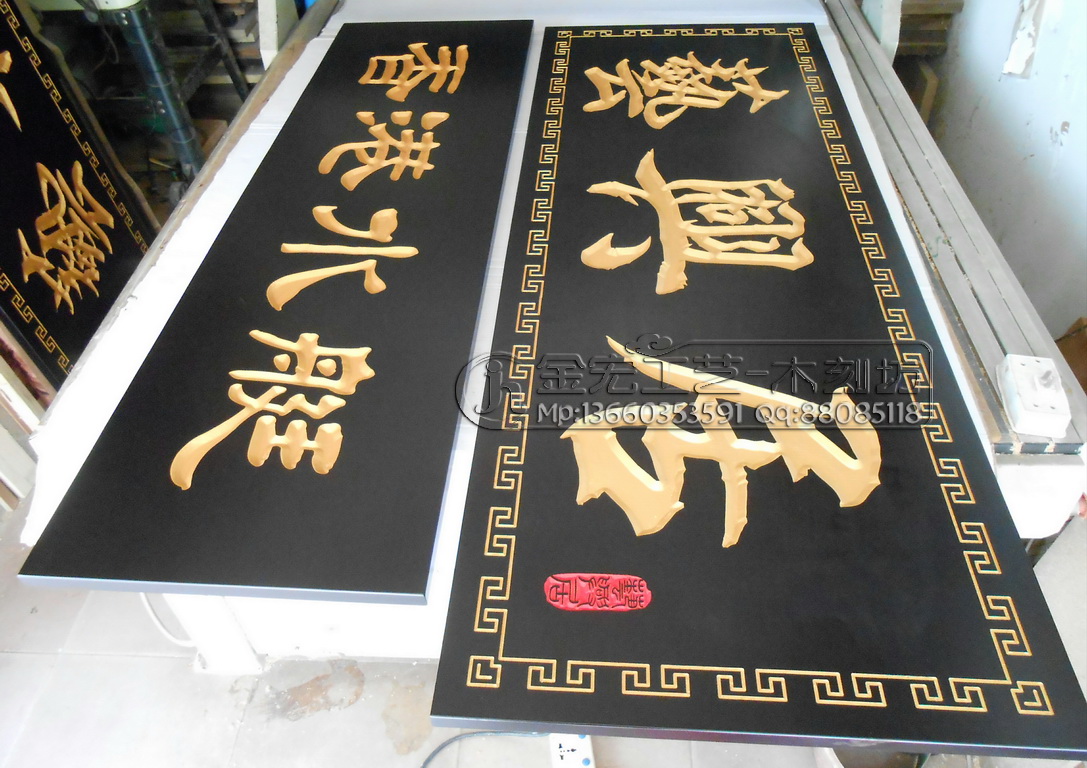 香港水艇
藝興居
金宏工艺-木刻坊
Mp:13660353591 QQ:88085118